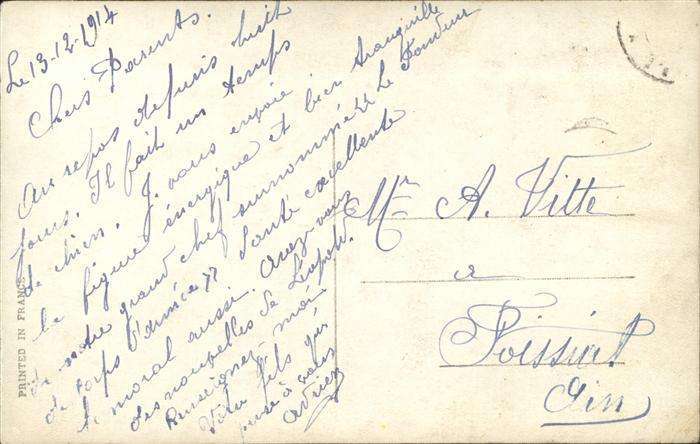 Le 13-12-1914
Chers Parents.
Au repos depuis huit
jours. Il fait un temps
de chien. Je vous envoie
la figure énergique et bien tranquille
de notre grand chef surnommé Le Fondeur
de corps d'armée. Santé excellente
le moral aussi. Avez-vous
des nouvelles de Léopold.
Renseignez-moi
Votre fils qui
pense à vous
Adrien
Mr A. Vitte
à
Foissiat
Ain
PRINTED IN FRANCE